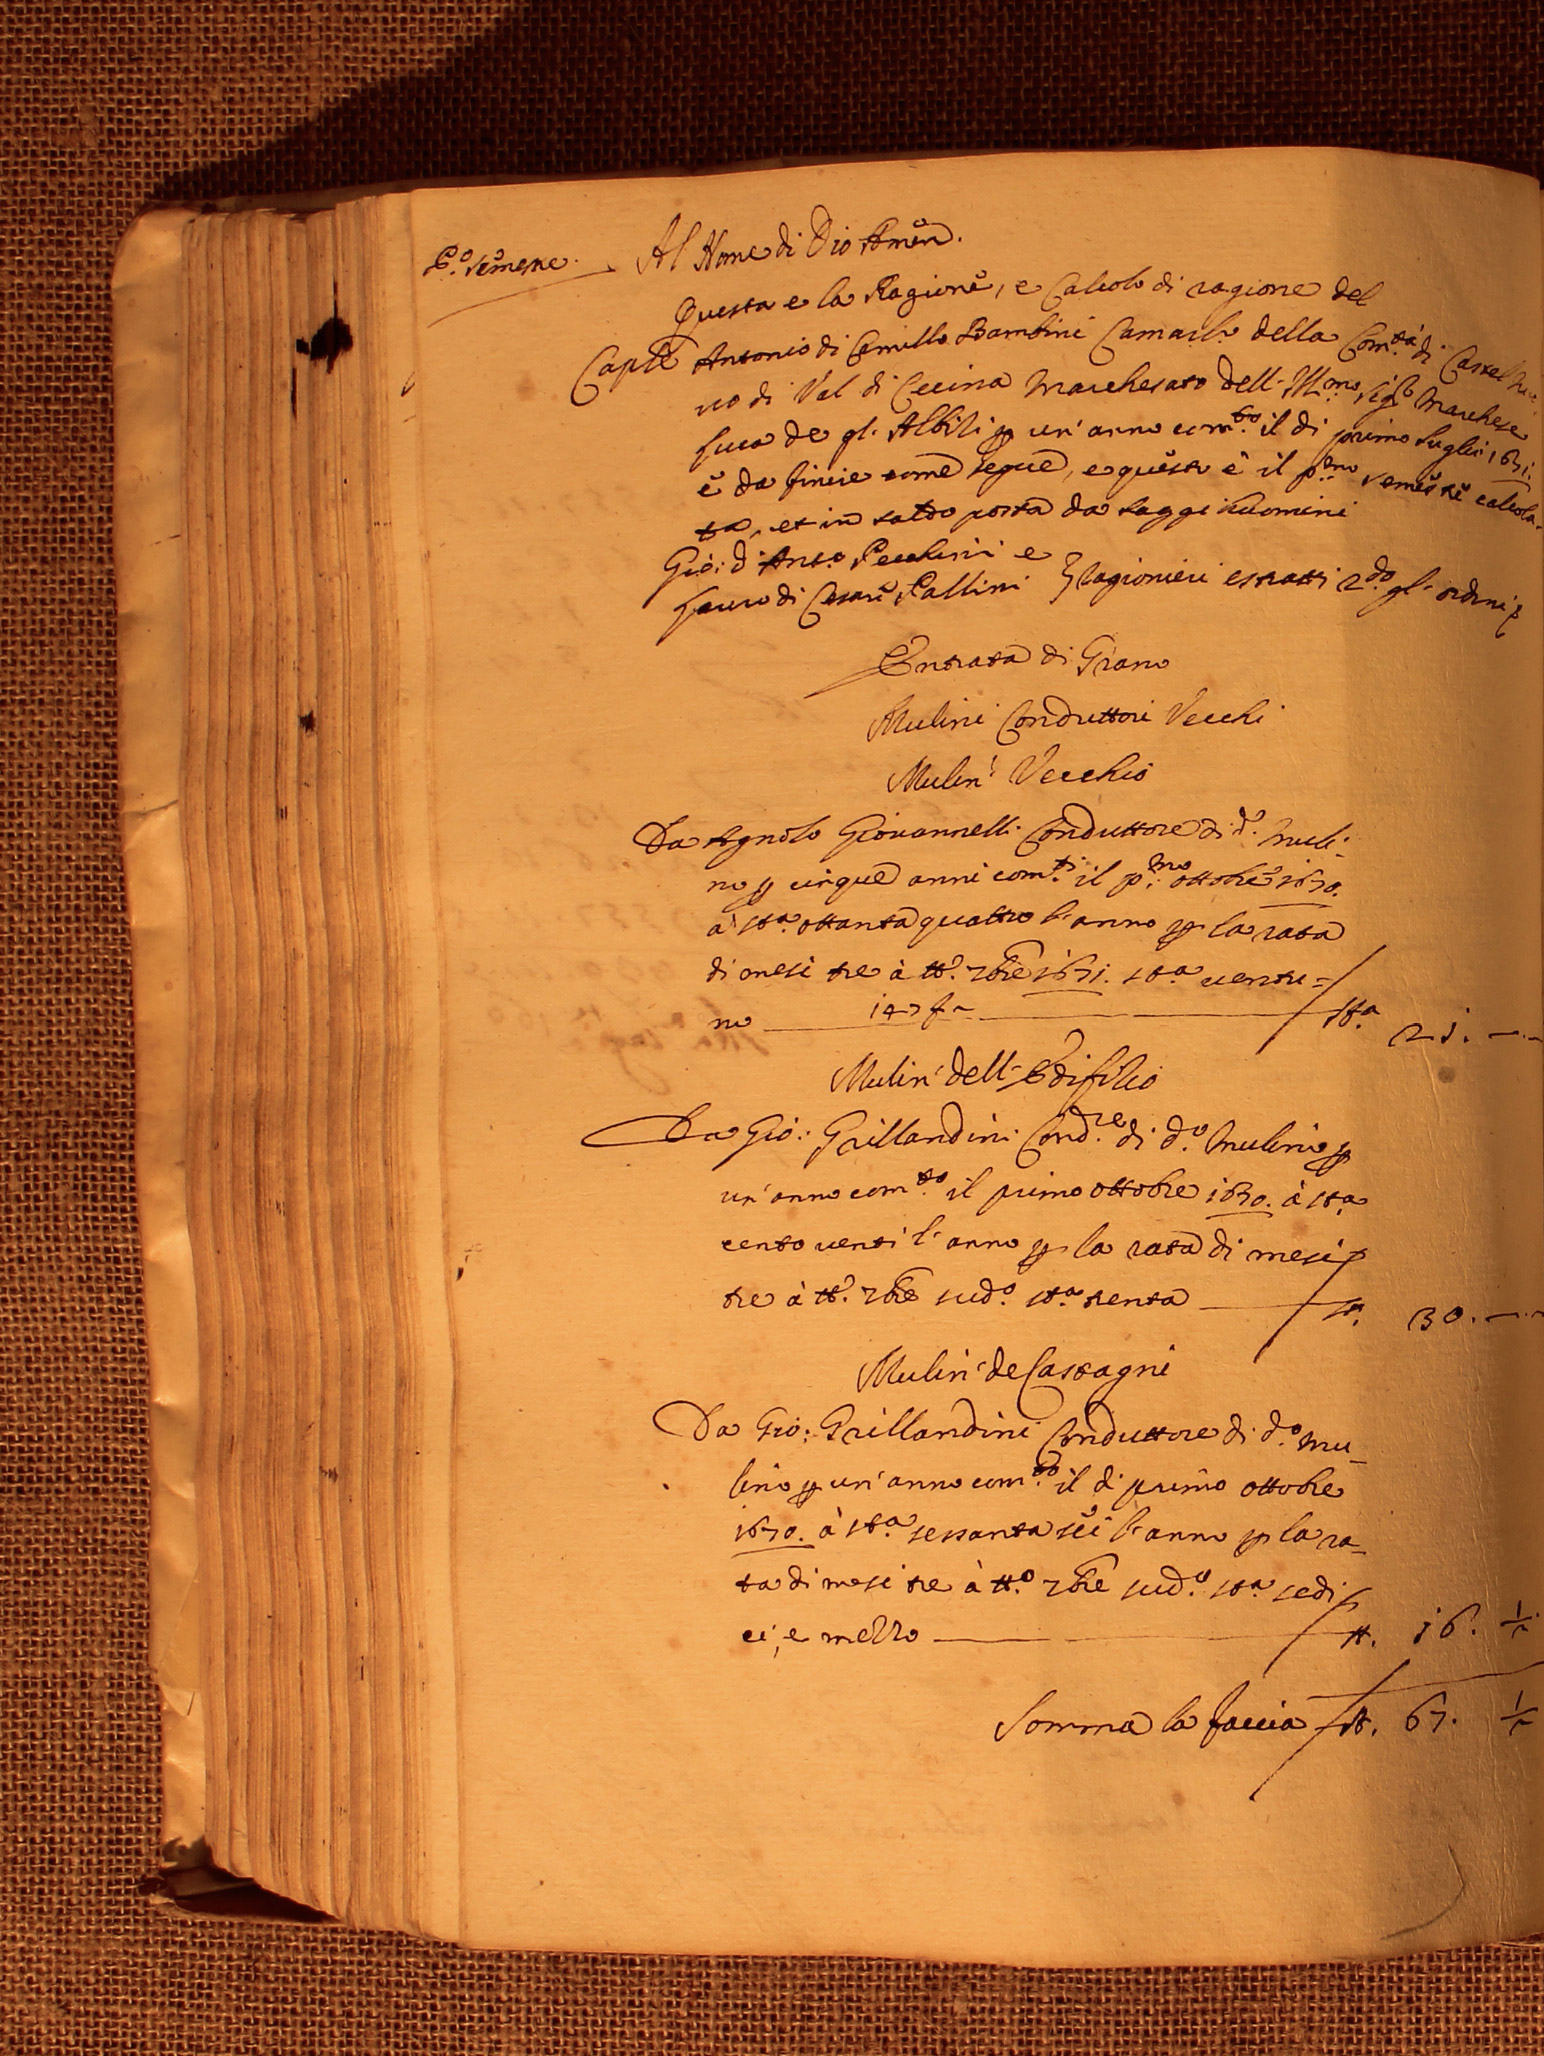 P.º semestre. Al Nome di Dio Amen.
Questa e la Ragione, e Calcolo di ragione del
Cap.le Antonio di Camillo Bambini Camarl.º della Com.tà di Castel Nuo
vo di Val di Cecina Marchesato dell' Ill.mo Sig.r Marchese
Luca de gl' Albizi p un' anno com.to il di primo Luglio 1671.
e da finire come segue, e questo è il p.mo semestre calcola-
to, et in saldo posta da saggi huomini
Gio: d'Ant.º Pecchini e
Lauro di Cesare Pallini } Ragionieri estratti 2.do gl' ordini p
Entrata di Grano
Mulini Conduttori Vecchi
Mulin' Vecchio
Da Agnolo Giovannelli Conduttore di d.º Muli-
no p cinque anni com.ti il p.mo ottobre 1670.
à sta. ottanta quattro l'anno p la rata
di mesi tre à tt.º 7bre 1671. sta. ventu=
no sta. 21. —
Mulin' dell' Edifizio
Da Gio: Grillandini Cond.re di d.º Mulino p
un' anno com.to il primo ottobre 1670. à sta.
cento venti l'anno p la rata di mesi
tre à tt.º 7bre sud.º sta. trenta st. 30. —
Mulin' de Castagni
Da Gio: Grillandini Conduttore di d.º Mu-
lino p un' anno com.to il dì primo ottobre
1670. à sta. sessanta sei l'anno p la ra-
ta di mesi tre à tt.º 7bre sud.º sta. sedi
ci, e mezzo st. 16. ½
Somma la faccia st. 67. ½